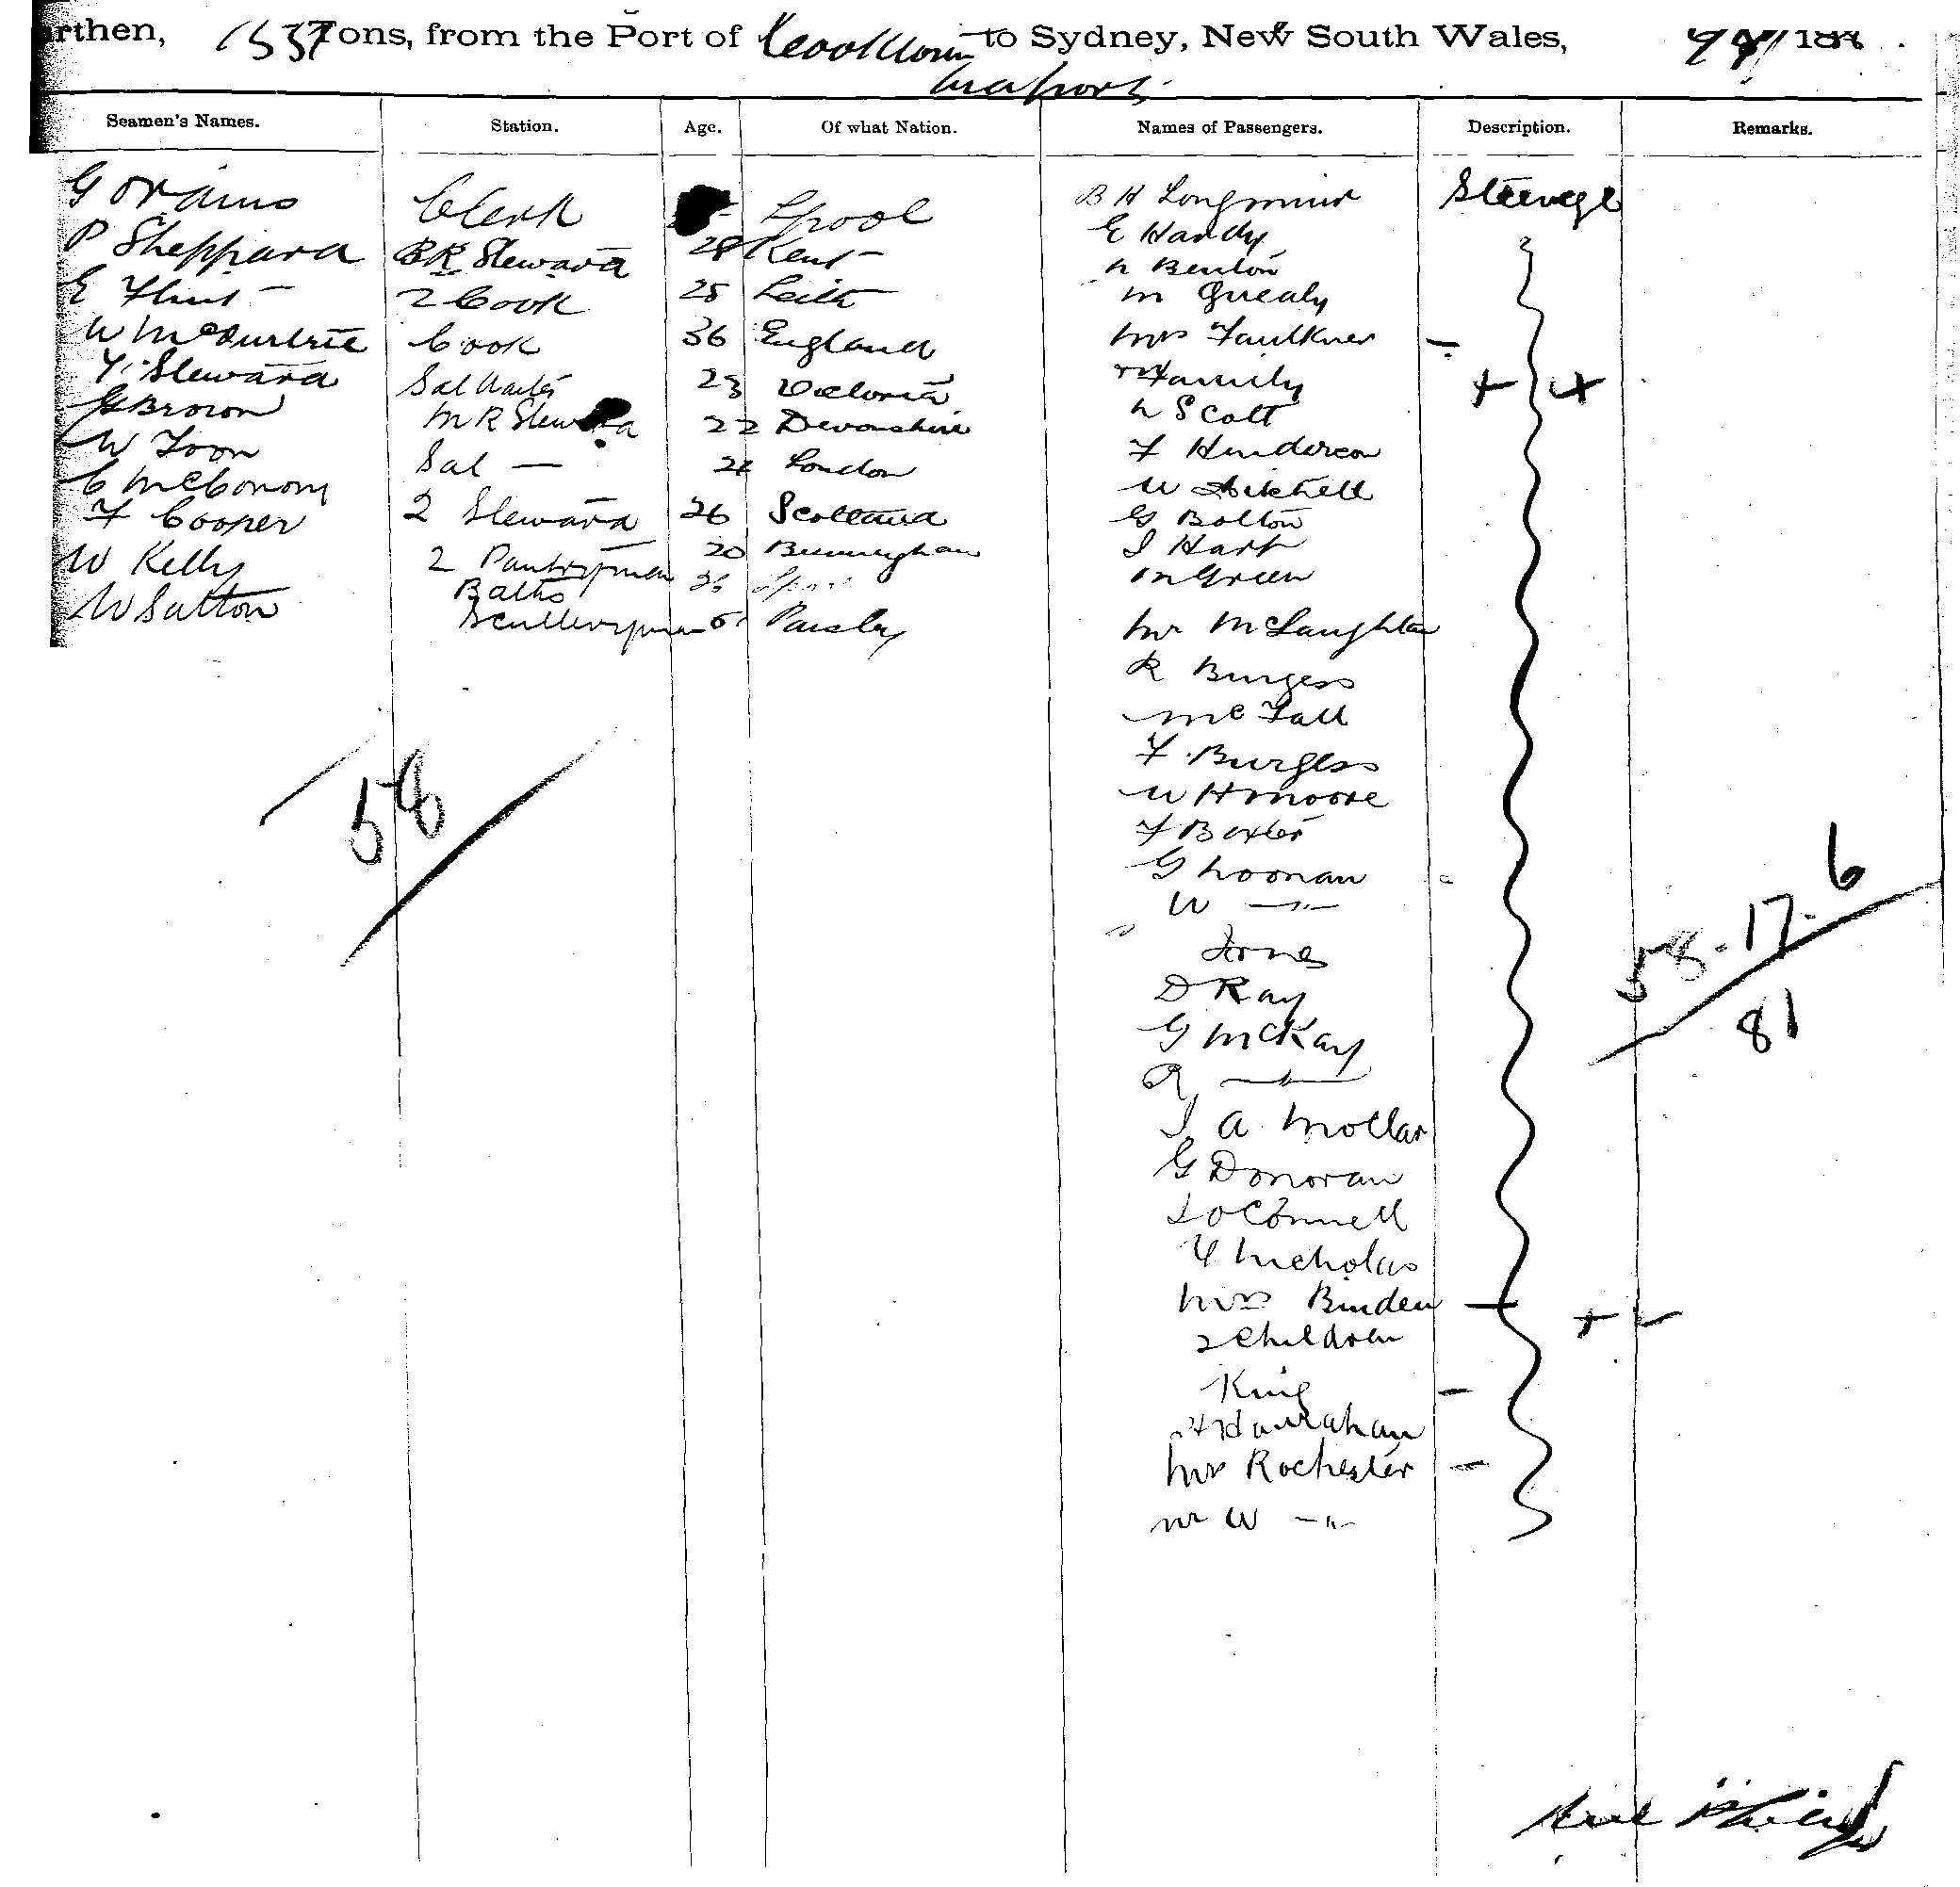 rthen, 1537 Tons, from the Port of Cooktown to Sydney, New South Wales, 188 .
Seamen's Names. Station. Age. Of what Nation. Names of Passengers. Description. Remarks.
G Orams Clerk Lpool
P Sheppard BR Steward 28 Kent
E Flint 2 Cook 25 Leith
W McDurtrie Cook 36 England
Y. Steward Sal Waiter 23 Victoria
G Brown MR Steward 22 Devonshire
W Toon Sal — London
C McConomy 2 Steward 26 Scotland
F Cooper 2 Pantryman 20 Birmingham
W Kelly Baths
W Sutton Sculleryman Paisley
B H Longmuir Steerage
E Handy
Benton
M Grealy
Mrs Faulkner
Family
Scott
F Henderson
W Mitchell
G Bolton
J Hart
M Green
Mr McLaughlan
R Burgess
McFall
F. Burgess
W H Moore
F Baxter
G Noonan
W —"—
Jones
D Ray
G McKay
R —"—
J A Mollar
G Donovan
J O'Connell
Y Nicholas
Mrs Binden
2 Children
King
Hanrahan
Mrs Rochester
Mr W —"—
58
58.17.6
81